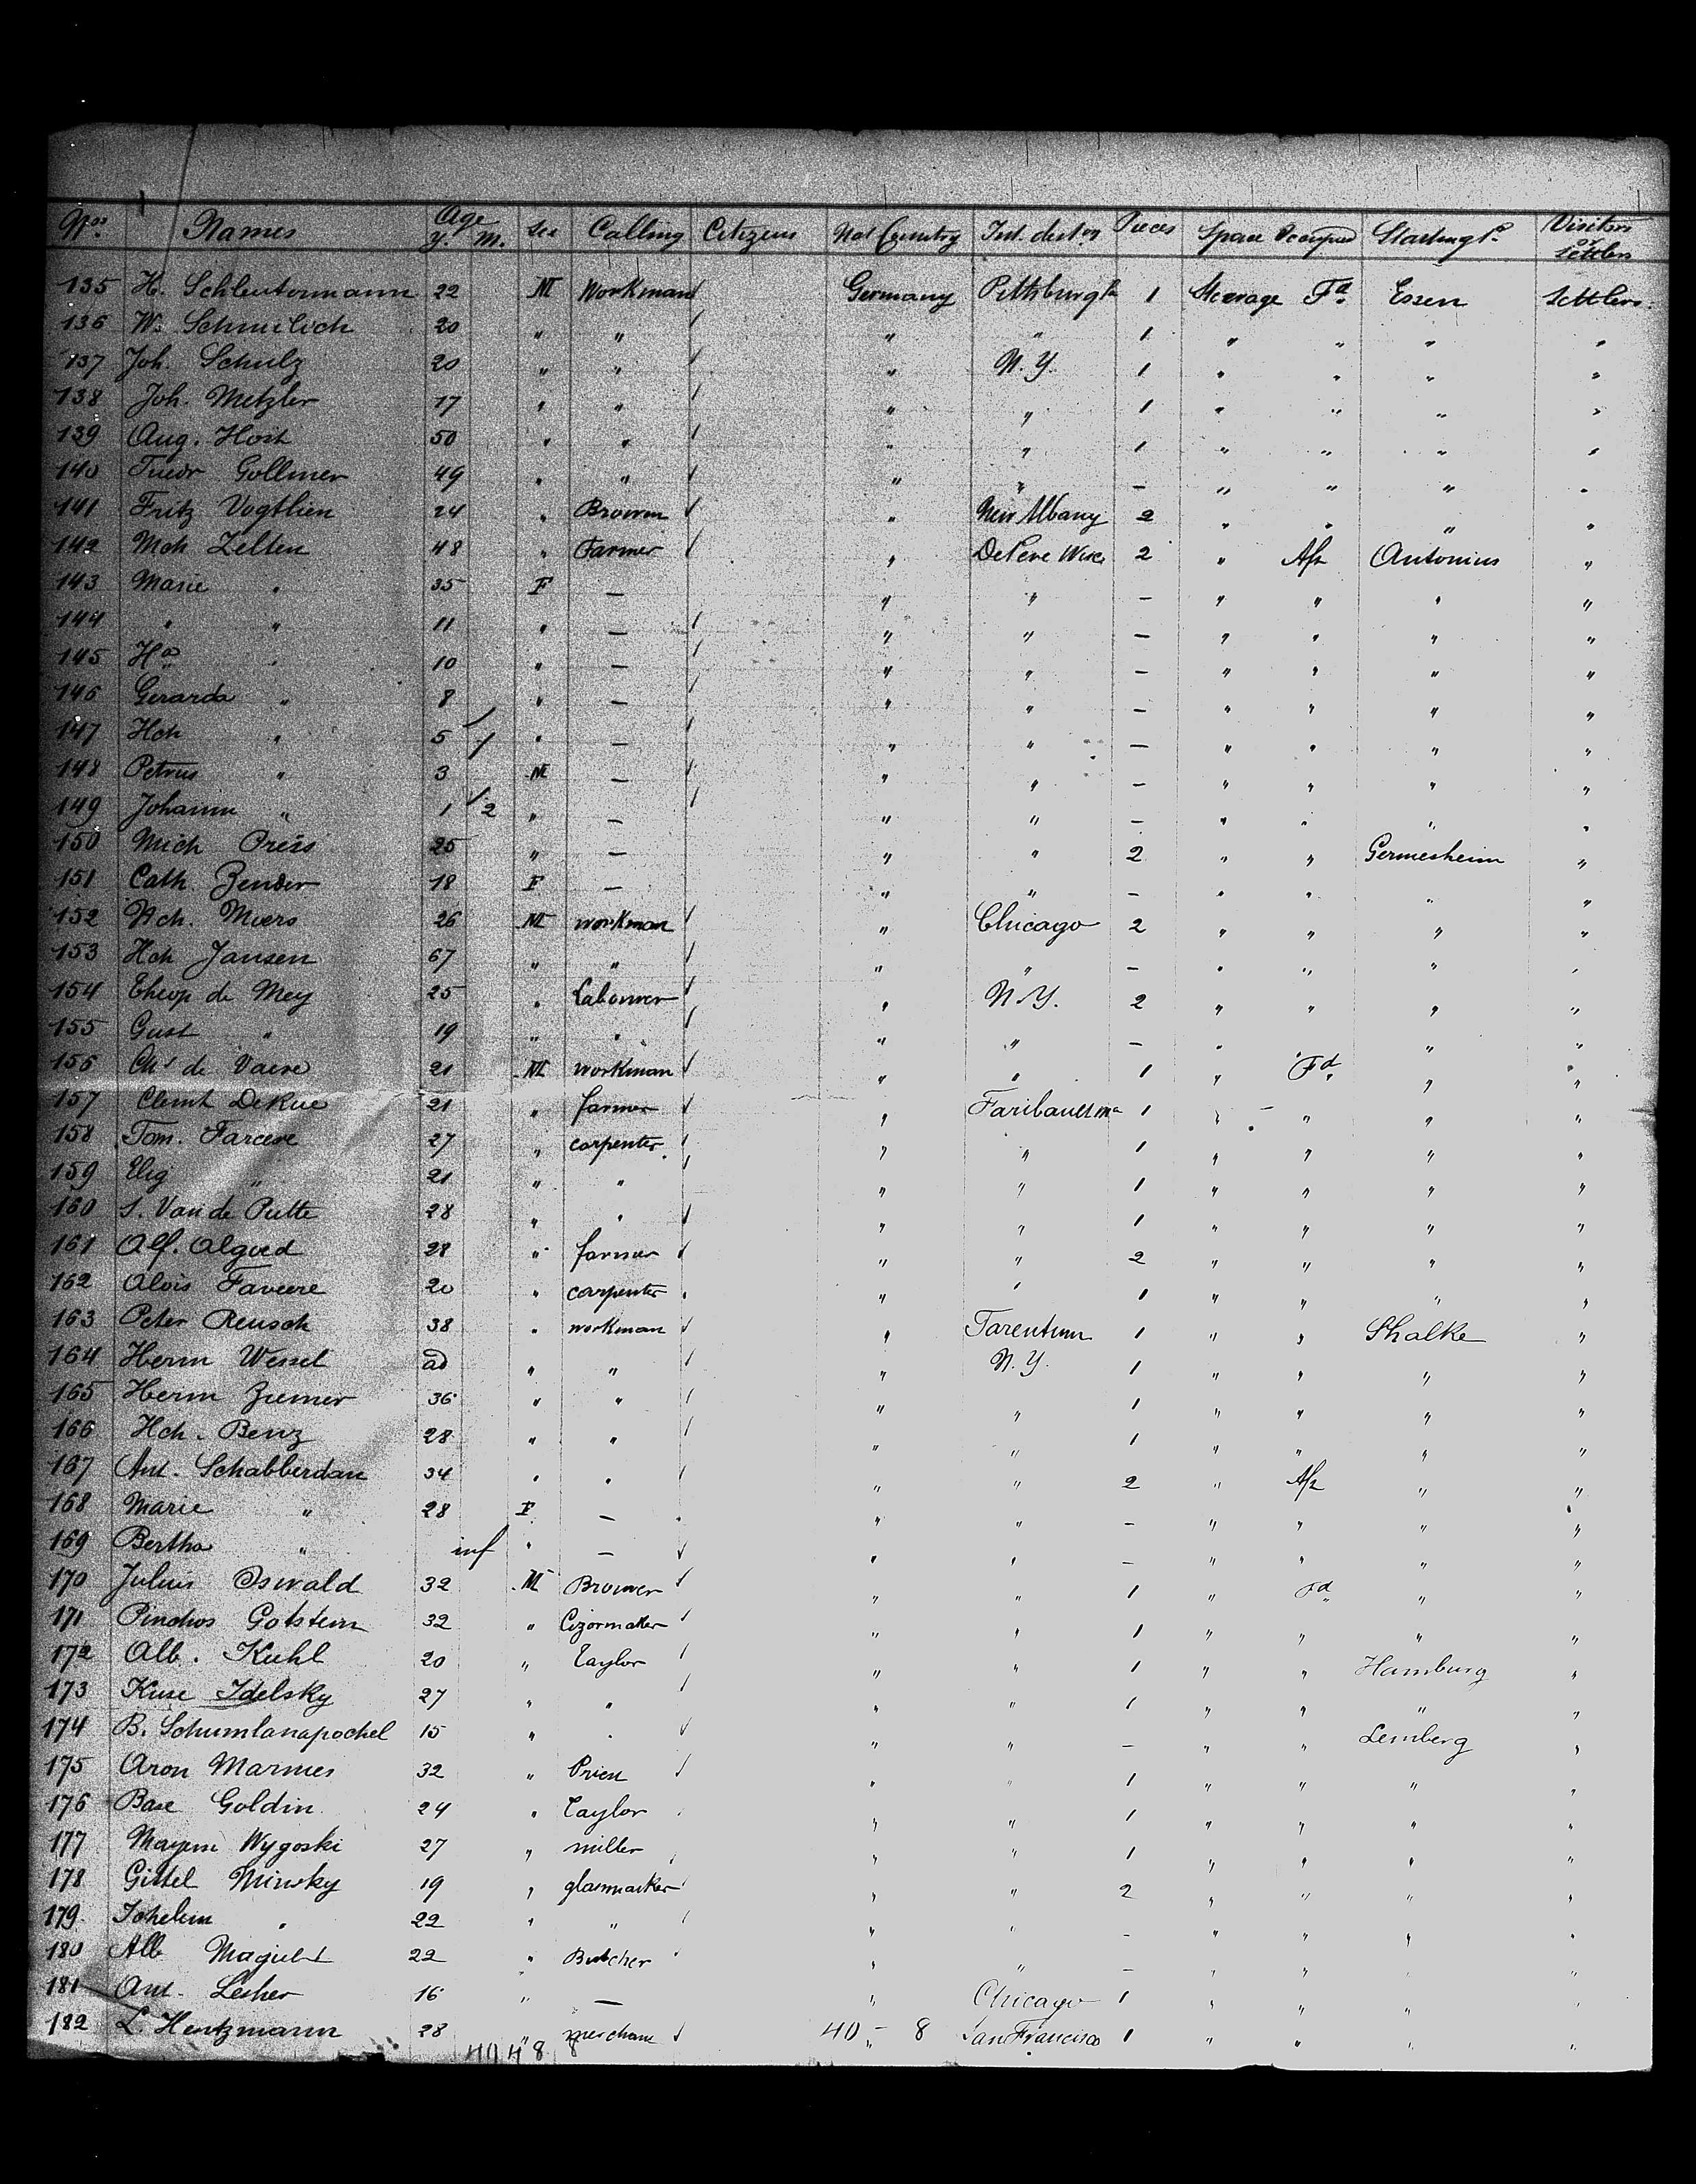 Nos. Names Age y. M. Sex Calling Citizens Nat Country Int. dest on Pieces Space Occupied Starting P. Visitors or Settlers
135 H. Schleutermann 22 M Workman Germany Pittsburgh 1 Steerage Fd Essen Settlers
136 W. Schmilich 20 " " " " 1 " " " "
137 Joh. Schulz 20 " " " N.Y. 1 " " " "
138 Joh. Metzler 17 " " " " 1 " " " "
139 Aug. Host 50 " " " " 1 " " " "
140 Friedr Gollmer 49 " " " " — " " " "
141 Fritz Vogtlien 24 " Brower " New Albany 2 " " " "
142 Mch Zelten 48 " Farmer " DePere Wisc 2 " Aft Antonius "
143 Marie " 35 F — " " — " " " "
144 " " 11 " — " " — " " " "
145 Ha " 10 " — " " — " " " "
146 Gerarda " 8 " — " " — " " " "
147 Hch " 5 " — " " — " " " "
148 Petrus " 3 M — " " — " " " "
149 Johann " 1 2 " — " " — " " " "
150 Mich Preis 25 " — " " 2 " " Germesheim "
151 Cath Zender 18 F — " " — " " " "
152 Hch. Miers 26 M workman " Chicago 2 " " " "
153 Hch Jansen 67 " " " " — " " " "
154 Theop de Mey 25 " Labourer " N.Y. 2 " " " "
155 Gust " 19 " " " " — " " "
156 Chs de Vaere 21 M workman " " 1 " Fd " "
157 Clemt DeRue 21 " farmer " Faribault 1 " " " "
158 Tom. Farcere 27 " carpenter " " 1 " " " "
159 Elig " 21 " " " " 1 " " " "
160 S. Van de Putte 28 " " " " 1 " " " "
161 Alf. Algoed 28 " farmer " " 2 " " " "
162 Alois Faveere 20 " carpenter " " 1 " " " "
163 Peter Reusch 38 " workman " Tarentum 1 " " Shalke "
164 Herm Wessel ad " " " N.Y. 1 " " " "
165 Herm Ziemer 36 " " " " 1 " " " "
166 Hch. Benz 28 " " " " 1 " " " "
167 Ant. Schabberdan 34 " " " " 2 " Aft " "
168 Marie " 28 F — " " — " " " "
169 Bertha " inf " — " " — " " " "
170 Julius Oswald 32 M Brower " " 1 " Fd " "
171 Pinchos Gotstein 32 " Cigormaker " " 1 " " " "
172 Alb. Kuhl 20 " Taylor " " 1 " " Hamburg "
173 Kuse Idelsky 27 " " " " 1 " " " "
174 B. Schumlanapochel 15 " " " " — " " Lemberg "
175 Aron Marmes 32 " Priest " " 1 " " " "
176 Base Goldin 24 " Taylor " " 1 " " " "
177 Mayem Wygoski 27 " miller " " 1 " " " "
178 Gittel Minsky 19 " glasmaker " " 2 " " " "
179 Schelem " 22 " " " " — " " " "
180 Alb Magiult 22 " Butcher " " — " " "
181 Ant. Lesher 16 " — " Chicago 1 " " " "
182 L. Hentzmann 28 " merchant 40 — 8 San Francisco 1 " " " "
40 4 8 8